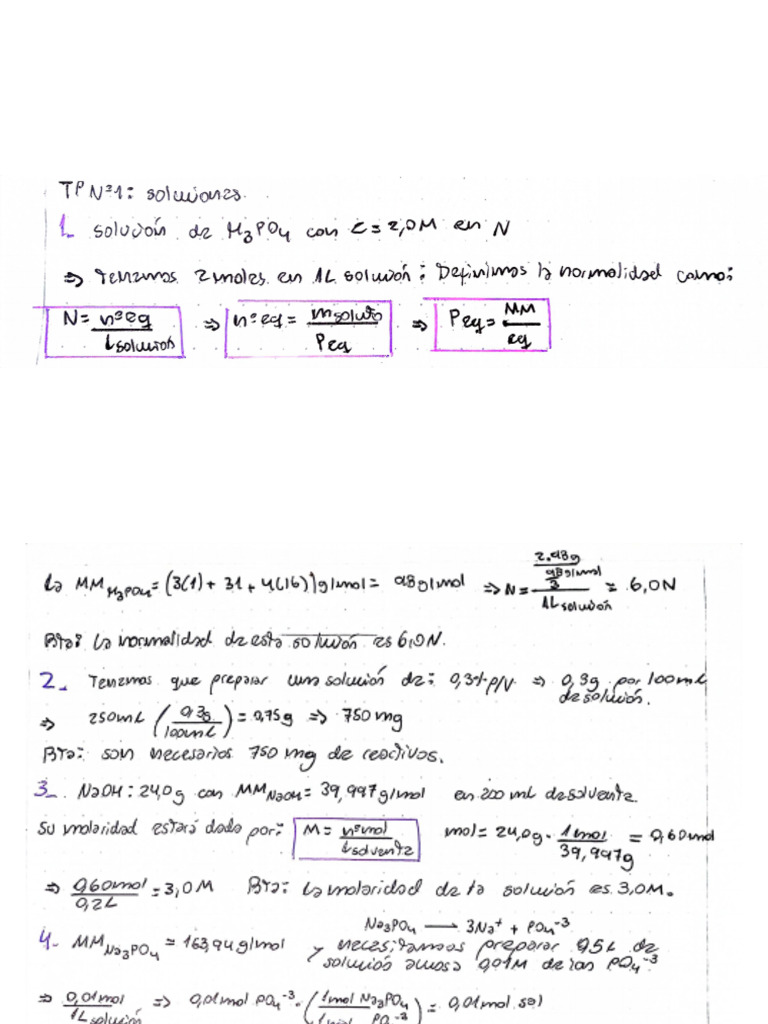 TP N°1: soluciones.
1_ solución de H₃PO₄ con C = 2,0M en N
⇒ Tenemos 2 moles en 1L solución: Definimos la normalidad como:
N = n°eq / L solución ⇒ n°eq = m soluto / Peq ⇒ Peq = MM / eq
↳ MM H₃PO₄ = (3(1) + 31 + 4(16)) g/mol = 98 g/mol ⇒ N = (2.98g / (98g/mol / 3)) / 1L solución = 6,0N
Rta: La normalidad de esta solución es 6,0N.
2_ Tenemos que preparar una solución de: 0,3% P/V ⇒ 0,3g por 100mL de solución.
⇒ 250mL (0,3g / 100mL) = 0,75g ⇒ 750 mg
Rta: son necesarios 750 mg de reactivos.
3_ NaOH: 24,0g con MM NaOH = 39,997g/mol en 200 mL de solvente.
Su molaridad estará dada por: M = n°mol / L solvente mol = 24,0g · 1mol / 39,997g = 0,60mol
⇒ 0,60mol / 0,2L = 3,0M Rta: La molaridad de la solución es 3,0M.
Na₃PO₄ → 3Na⁺ + PO₄⁻³
4_ MM Na₃PO₄ = 163,94g/mol y necesitamos preparar 0,5L de solución acuosa 0,01M de ion PO₄⁻³
⇒ 0,01mol / 1L solución ⇒ 0,01mol PO₄⁻³ · (1mol Na₃PO₄ / 1mol PO₄⁻³) = 0,01mol sal